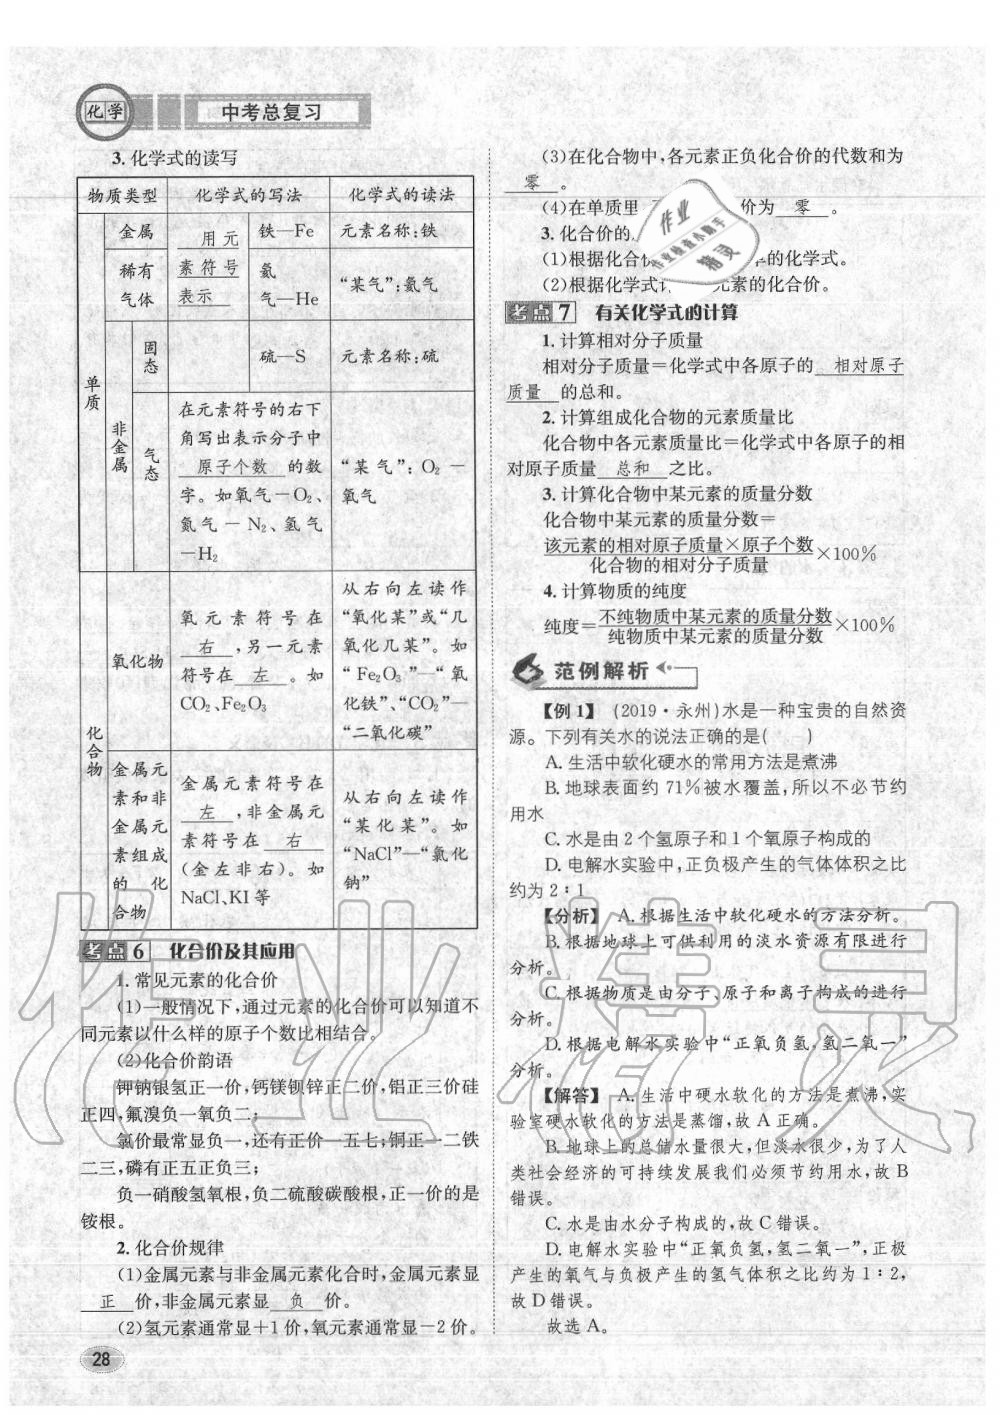 化学 中考总复习
3. 化学式的读写
物质类型 化学式的写法 化学式的读法
单质
金属
用元素符号表示
铁—Fe
元素名称:铁
稀有气体
氦气—He
“某气”:氦气
非金属
固态
硫—S
元素名称:硫
气态
在元素符号的右下
角写出表示分子中
原子个数 的数
字。如氧气—O₂、
氮气—N₂、氢气
—H₂
“某气”:O₂—
氧气
化合物
氧化物
氧元素符号在
右 ,另一元素
符号在 左 。如
CO₂、Fe₂O₃
从右向左读作
“氧化某”或“几
氧化几某”。如
“Fe₂O₃”—“氧
化铁”、“CO₂”—
“二氧化碳”
金属元
素和非
金属元
素组成
的化
合物
金属元素符号在
左 ,非金属元
素符号在 右
(金左非右)。如
NaCl、KI等
从右向左读作
“某化某”。如
“NaCl”—“氯化
钠”
考点6 化合价及其应用
1. 常见元素的化合价
(1)一般情况下,通过元素的化合价可以知道不
同元素以什么样的原子个数比相结合。
(2)化合价韵语
钾钠银氢正一价,钙镁钡锌正二价,铝正三价硅
正四,氟溴负一氧负二;
氯价最常显负一,还有正价一五七;铜正一二铁
二三,磷有正五正负三;
负一硝酸氢氧根,负二硫酸碳酸根,正一价的是
铵根。
2. 化合价规律
(1)金属元素与非金属元素化合时,金属元素显
正 价,非金属元素显 负 价。
(2)氢元素通常显+1价,氧元素通常显-2价。
28
(3)在化合物中,各元素正负化合价的代数和为
零 。
(4)在单质里 价为 零 。
3. 化合价的
(1)根据化合价 的化学式。
(2)根据化学式 元素的化合价。
考点7 有关化学式的计算
1. 计算相对分子质量
相对分子质量=化学式中各原子的 相对原子
质量 的总和。
2. 计算组成化合物的元素质量比
化合物中各元素质量比=化学式中各原子的相
对原子质量 总和 之比。
3. 计算化合物中某元素的质量分数
化合物中某元素的质量分数=
该元素的相对原子质量×原子个数
化合物的相对分子质量
×100%
4. 计算物质的纯度
纯度=
不纯物质中某元素的质量分数
纯物质中某元素的质量分数
×100%
范例解析
【例1】 (2019·永州)水是一种宝贵的自然资
源。下列有关水的说法正确的是( )
A. 生活中软化硬水的常用方法是煮沸
B. 地球表面约71%被水覆盖,所以不必节约
用水
C. 水是由2个氢原子和1个氧原子构成的
D. 电解水实验中,正负极产生的气体体积之比
约为2∶1
【分析】 A. 根据生活中软化硬水的方法分析。
B. 根据地球上可供利用的淡水资源有限进行
分析。
C. 根据物质是由分子、原子和离子构成的进行
分析。
D. 根据电解水实验中“正氧负氢,氢二氧一”
分析。
【解答】 A. 生活中硬水软化的方法是煮沸,实
验室硬水软化的方法是蒸馏,故A正确。
B. 地球上的总储水量很大,但淡水很少,为了人
类社会经济的可持续发展我们必须节约用水,故B
错误。
C. 水是由水分子构成的,故C错误。
D. 电解水实验中“正氧负氢,氢二氧一”,正极
产生的氧气与负极产生的氢气体积之比约为1∶2,
故D错误。
故选A。
作业
作业检查小助手
精灵
作业精灵